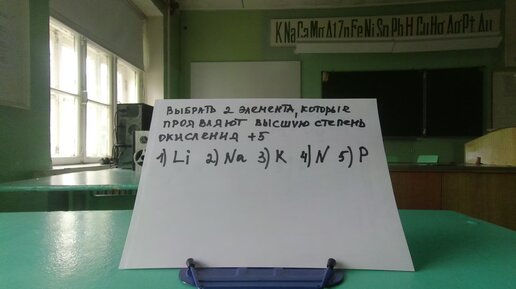 K Na Ca Mg Al Zn Fe Ni Sn Pb H Cu Hg Ag Pt Au
ВЫБРАТЬ 2 ЭЛЕМЕНТА, КОТОРЫЕ
ПРОЯВЛЯЮТ ВЫСШУЮ СТЕПЕНЬ
ОКИСЛЕНИЯ +5
1) Li 2) Na 3) K 4) N 5) P